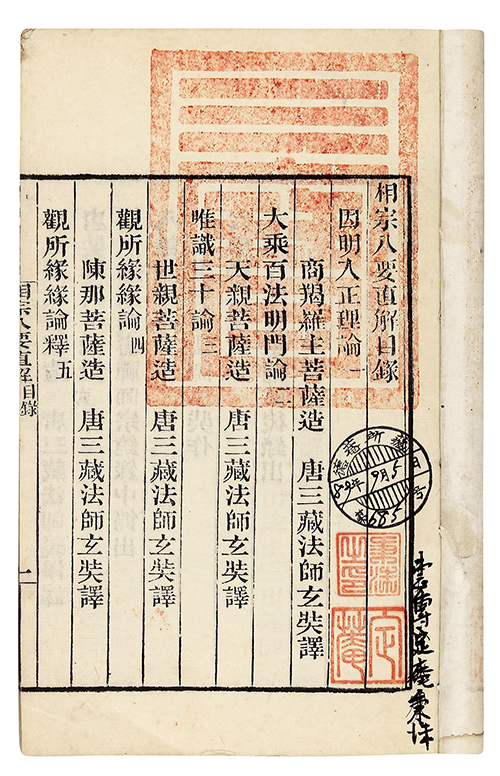 相宗八要直解目錄
因明入正理論一
商羯羅主菩薩造　唐三藏法師玄奘譯
大乘百法明門論二
天親菩薩造　唐三藏法師玄奘譯
唯識三十論三
世親菩薩造　唐三藏法師玄奘譯
觀所緣緣論四
陳那菩薩造　唐三藏法師玄奘譯
觀所緣緣論釋五
相宗八要直解目錄
一
9月5日
685
定菴